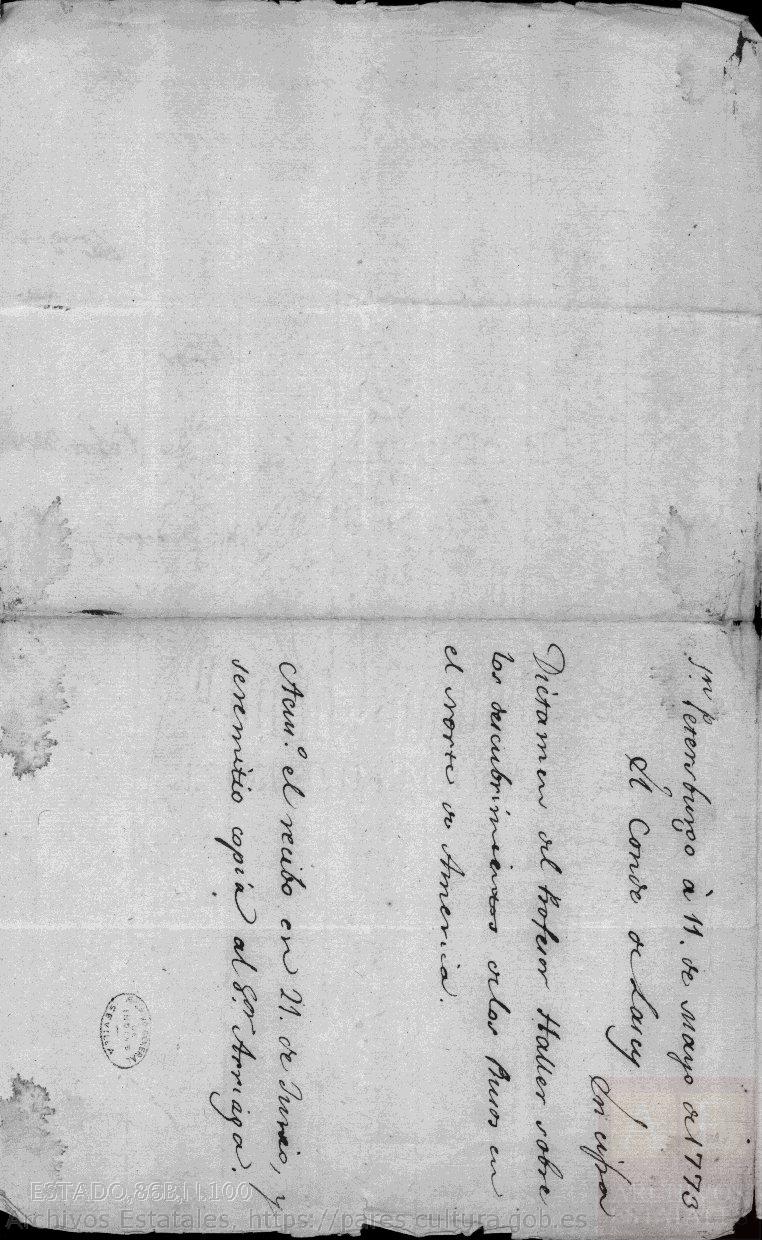 Sn. Petersburgo à 11. de Mayo de 1773
El Conde de Lascy
En cifra
Dictamen del Profesor Haller sobre
los descubrimientos de los Rusos en
el Norte de America.
Acusº. el recibo en 21. de Junio, y
se remitio copia al Sor. Arriaga.
SEVILLA
ESTADO,86B,N.100
Archivos Estatales, https://pares.cultura.gob.es